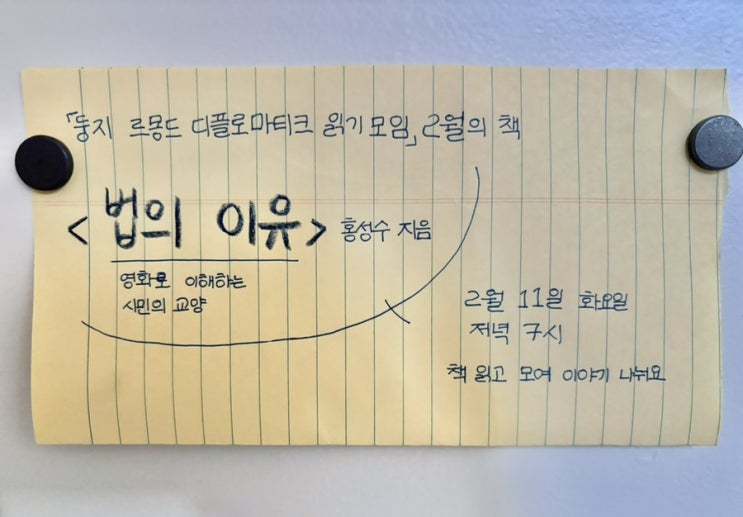 「둥지 르몽드 디플로마티크 읽기모임」 2월의 책
<법의 이유> 홍성수 지음
영화로 이해하는
시민의 교양
2월 11일 화요일
저녁 7시
책 읽고 모여 이야기 나눠요